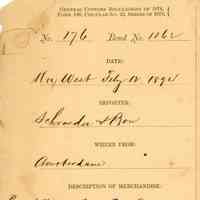 General Customs Regulations of 1874,
Form 140, Circular No. 22, Series of 1876.
No. 176 Bond No. 1062
DATE:
Key West July 12 1892
EXPORTER:
Schroeder & Bon
WHERE FROM:
Amsterdam
DESCRIPTION OF MERCHANDISE: